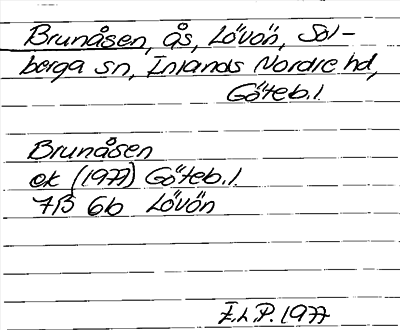 Brunåsen, ås, Lövön, Sol-
berga sn, Inlands Nordre hd,
Göteb.l.
Brunåsen
ek (1977) Göteb.l.
7B 6b Lövön
E.L.P. 1977